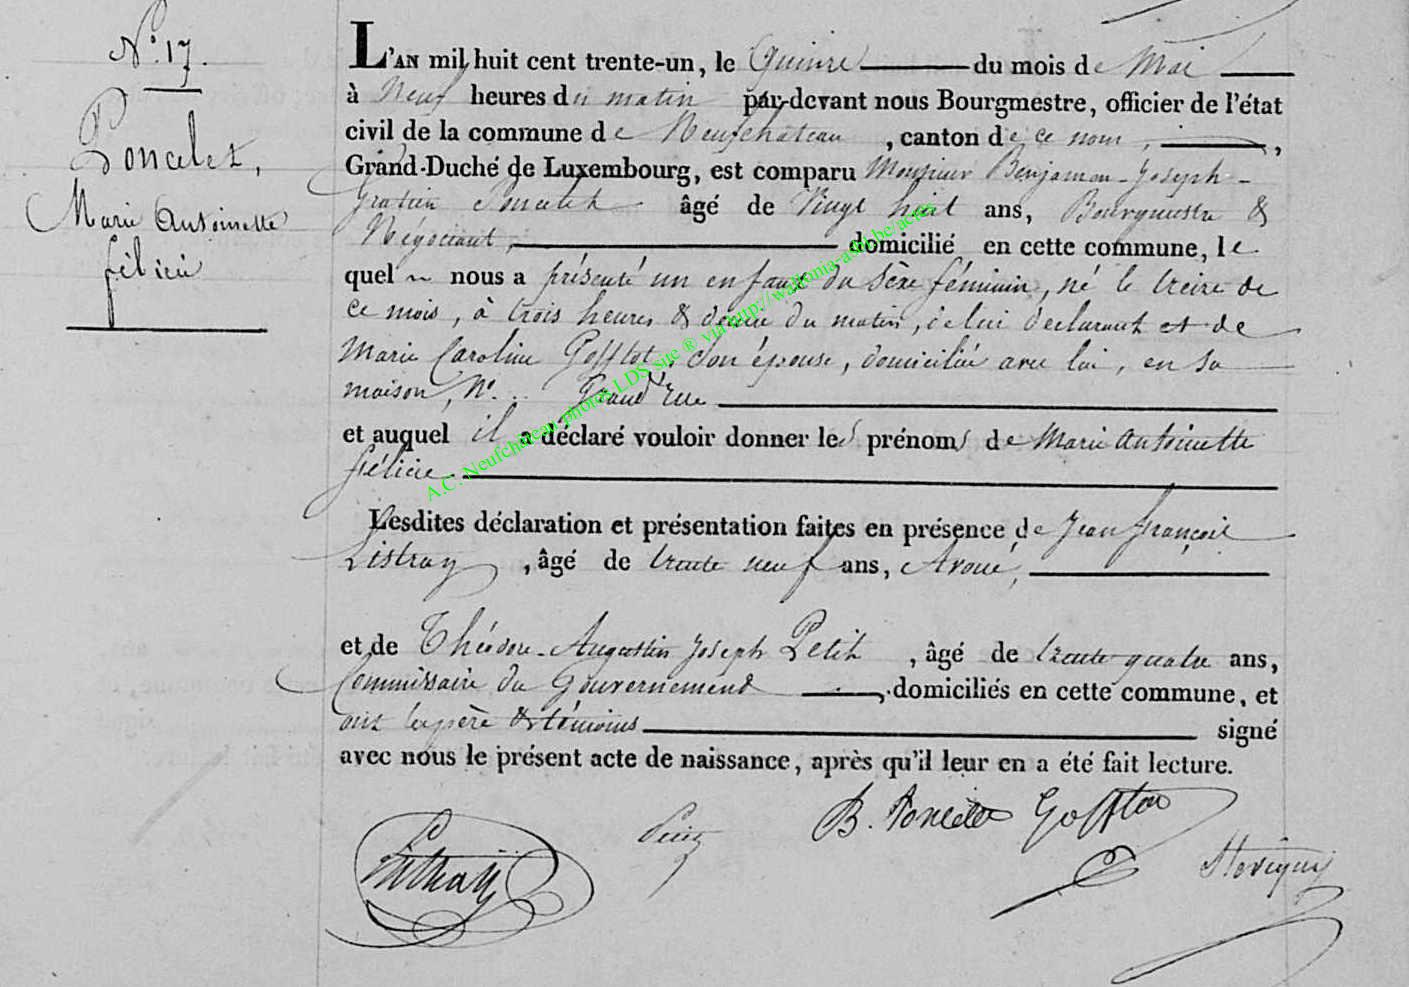 N.° 17.
Poncelet,
Marie Antoinette
félicie
L'AN mil huit cent trente-un, le Quinze du mois de Mai
à Neuf heures du matin par-devant nous Bourgmestre, officier de l'état
civil de la commune de Neufchâteau , canton de ce nom, ,
Grand-Duché de Luxembourg, est comparu Monsieur Benjamin-Joseph-
Gratien Poncelet âgé de Vingt huit ans, Bourgmestre &
Négociant, domicilié en cette commune, le
quel nous a présenté un enfant du sèxe féminin, né le treize de
ce mois, à trois heures & demie du matin, de lui déclarant et de
Marie Caroline Goffflot, son épouse, domiciliée avec lui, en sa
maison, N.° .. Grand'Rue
et auquel il a déclaré vouloir donner les prénoms de Marie Antoinette
félicie
Lesdites déclaration et présentation faites en présence de Jean françois
Listray , âgé de trente neuf ans, Avoué,
et de Théodore-Augustin Joseph Petit , âgé de trente quatre ans,
Commissaire du Gouvernement , domiciliés en cette commune, et
ont les père & témoins signé
avec nous le présent acte de naissance, après qu'il leur en a été fait lecture.
B. Poncelet Gofflot
Petit
Listray
A.C. Neufchâteau photos LDS site ® via http://wallonia-asbl.be/actes